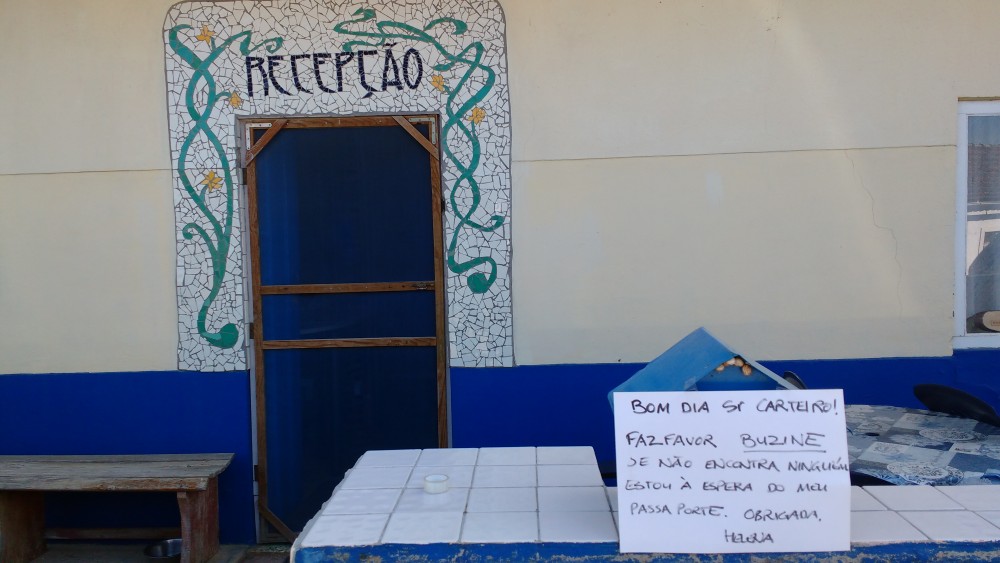 RECEPÇÃO
BOM DIA Sr CARTEIRO!
FAZ FAVOR BUZINE
SE NÃO ENCONTRA NINGUÉM
ESTOU À ESPERA DO MEU
PASSAPORTE. OBRIGADA,
HELENA